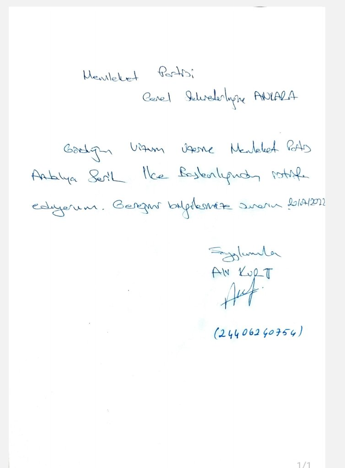 Memleket Partisi
Genel Sekreterliğine ANKARA
Gördüğüm lüzum üzerine Memleket Partisi
Antalya Serik İlçe Başkanlığından istifa
ediyorum. Gereğini bilgilerinize sunarım
Saygılarımla
KURT
(24406240754)
1/1